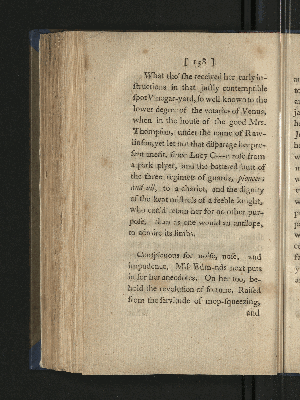 [ 138 ]
What tho' she received her early in-
structions in that justly contemptible
spot Vinegar-yard, so well known to the
lower degree of the votaries of Venus,
when in the house of the good Mrs.
Thompson, under the name of Raw-
linson, yet let not that disparage her pre-
sent merit, since Lucy C rose from
a park plyer, and the battered butt of
the three regiments of guards, pioneers
and all, to a chariot, and the dignity
of the kept mistress of a feeble knight,
who could retain her for no other pur-
pose, than as one would an antilope,
to admire its limbs.
Conspicuous for noise, nose, and
impudence, Miss Edm-nds next puts
in for her anecdotes. She too, be-
held the revolution of fortune. Raised
from the servitude of mop-squeezing,
and